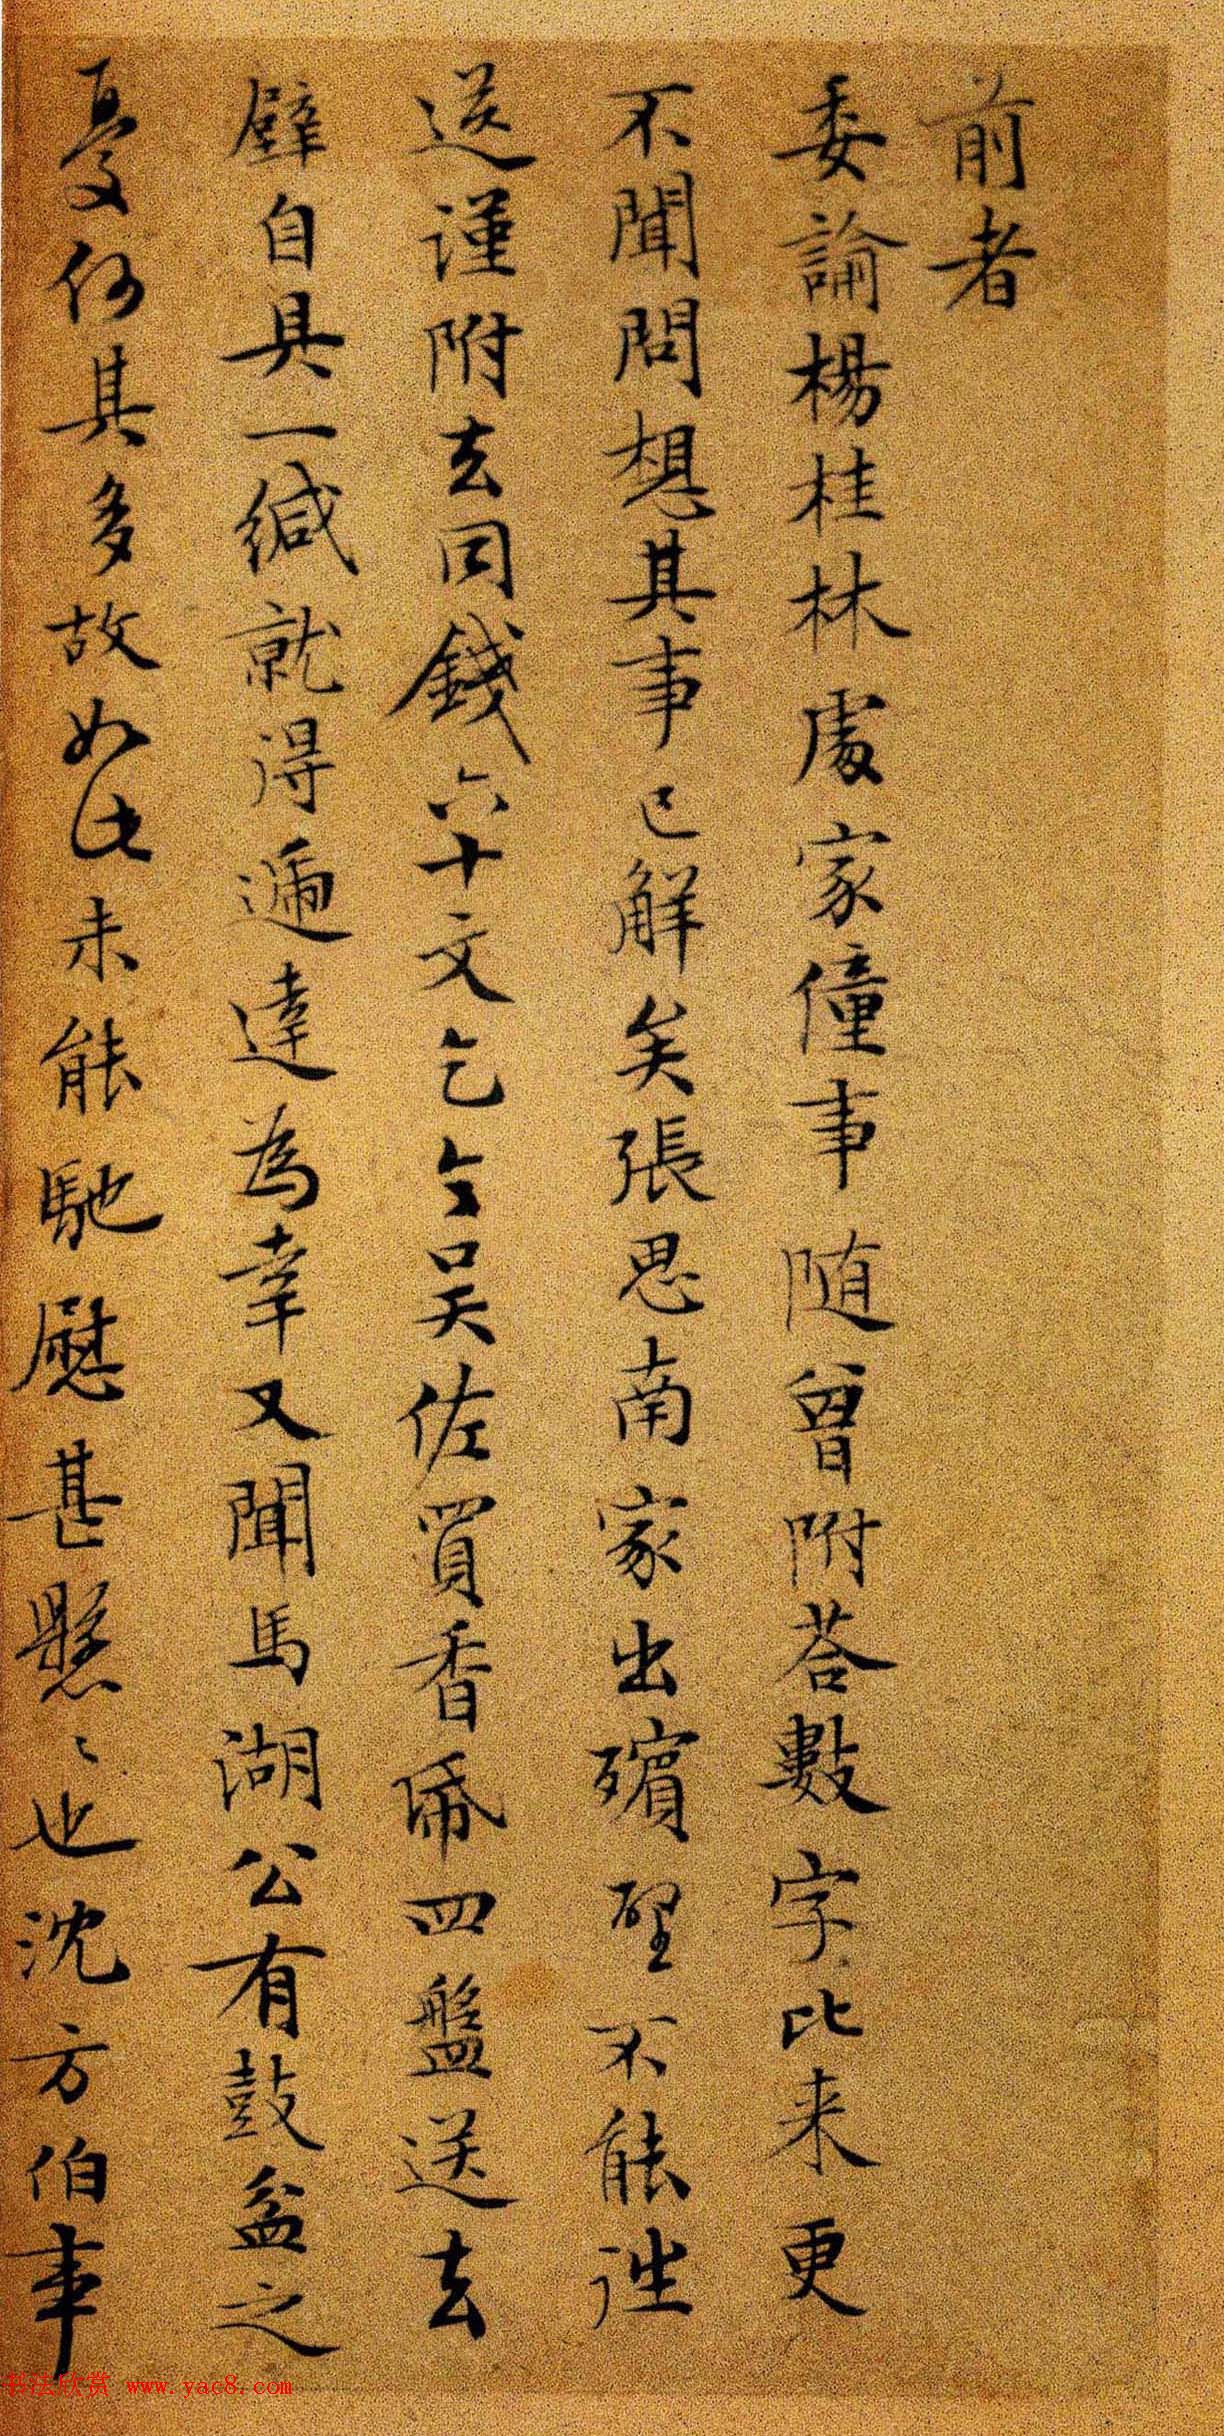 前者
委論楊桂林處家僮事随曾附荅數字比来更
不聞問想其事已解矣張思南家出殯聖不能往
送謹附去同錢六十文乞令吴佐買香帋四盤送去
璧自具一緘就得逓達為幸又聞馬湖公有鼓盆之
憂何其多故如此未能馳慰甚懸〻也沈方伯事
书法欣赏 www.yac8.com